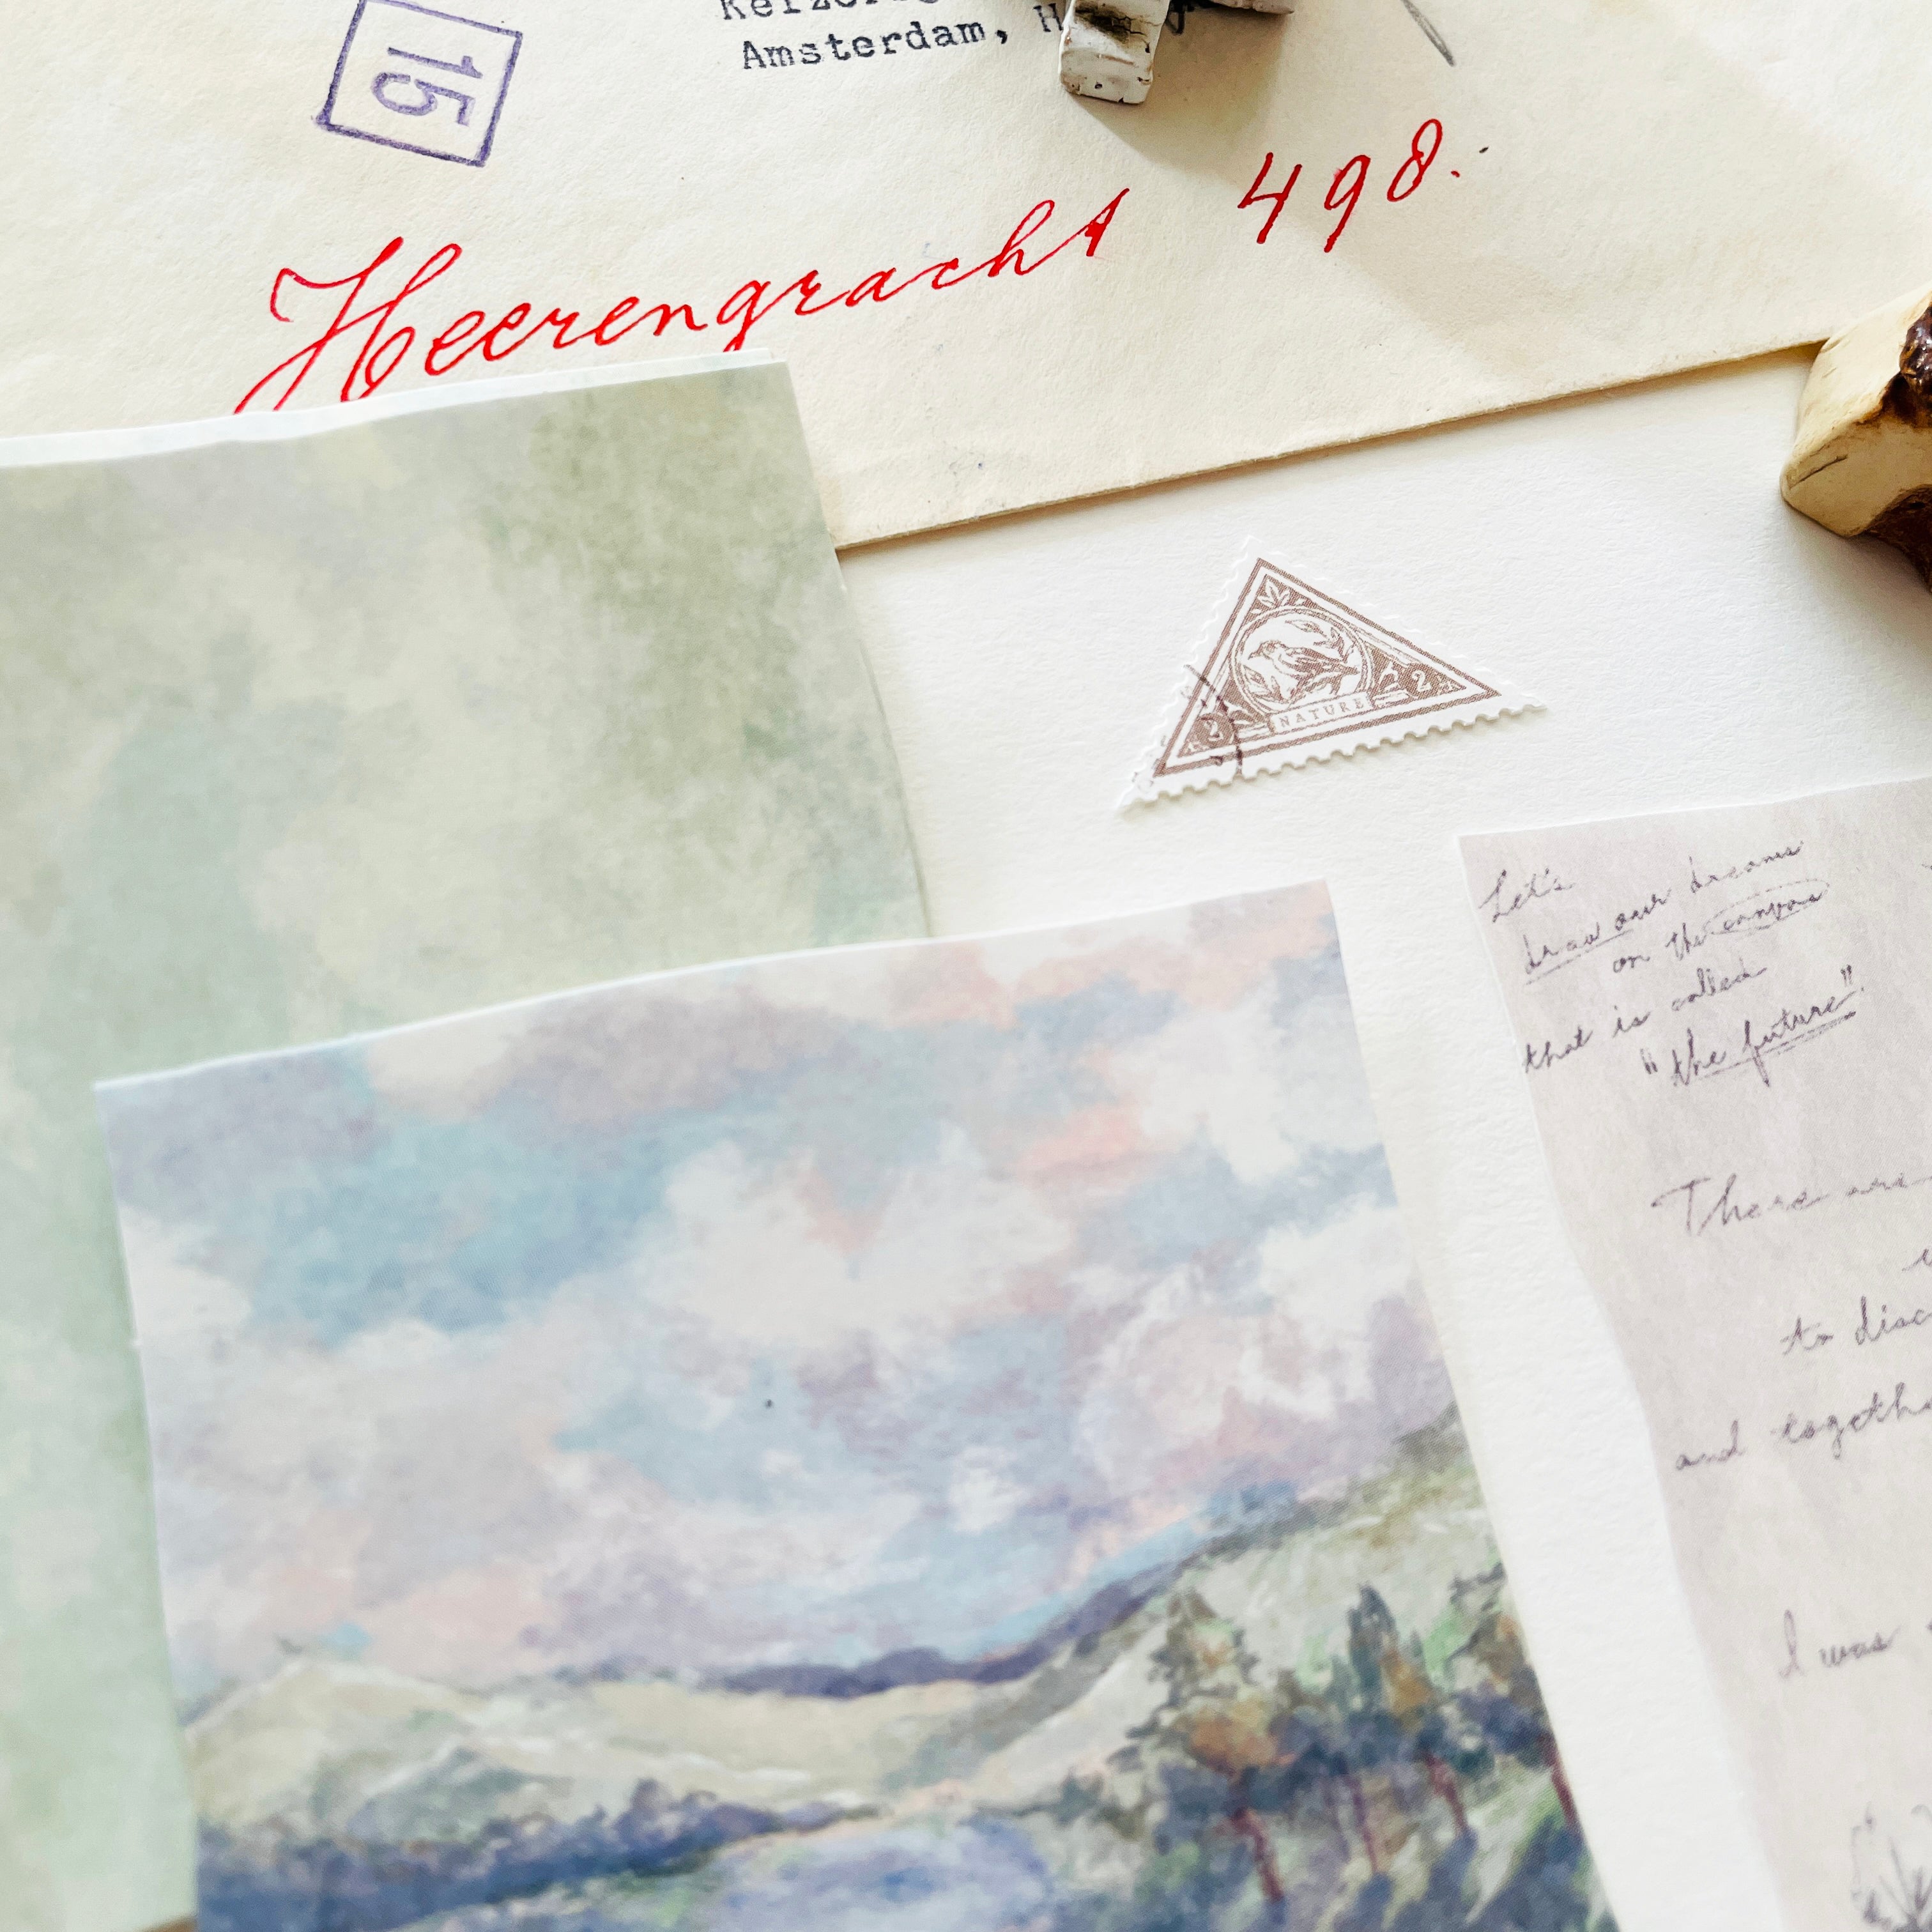 15
Amsterdam, H
Heerengracht 498.
2
NATURE
2
Let's
draw our dreams
on the canvas
that is called
"the future".
There are
to disc
and togethe
I was